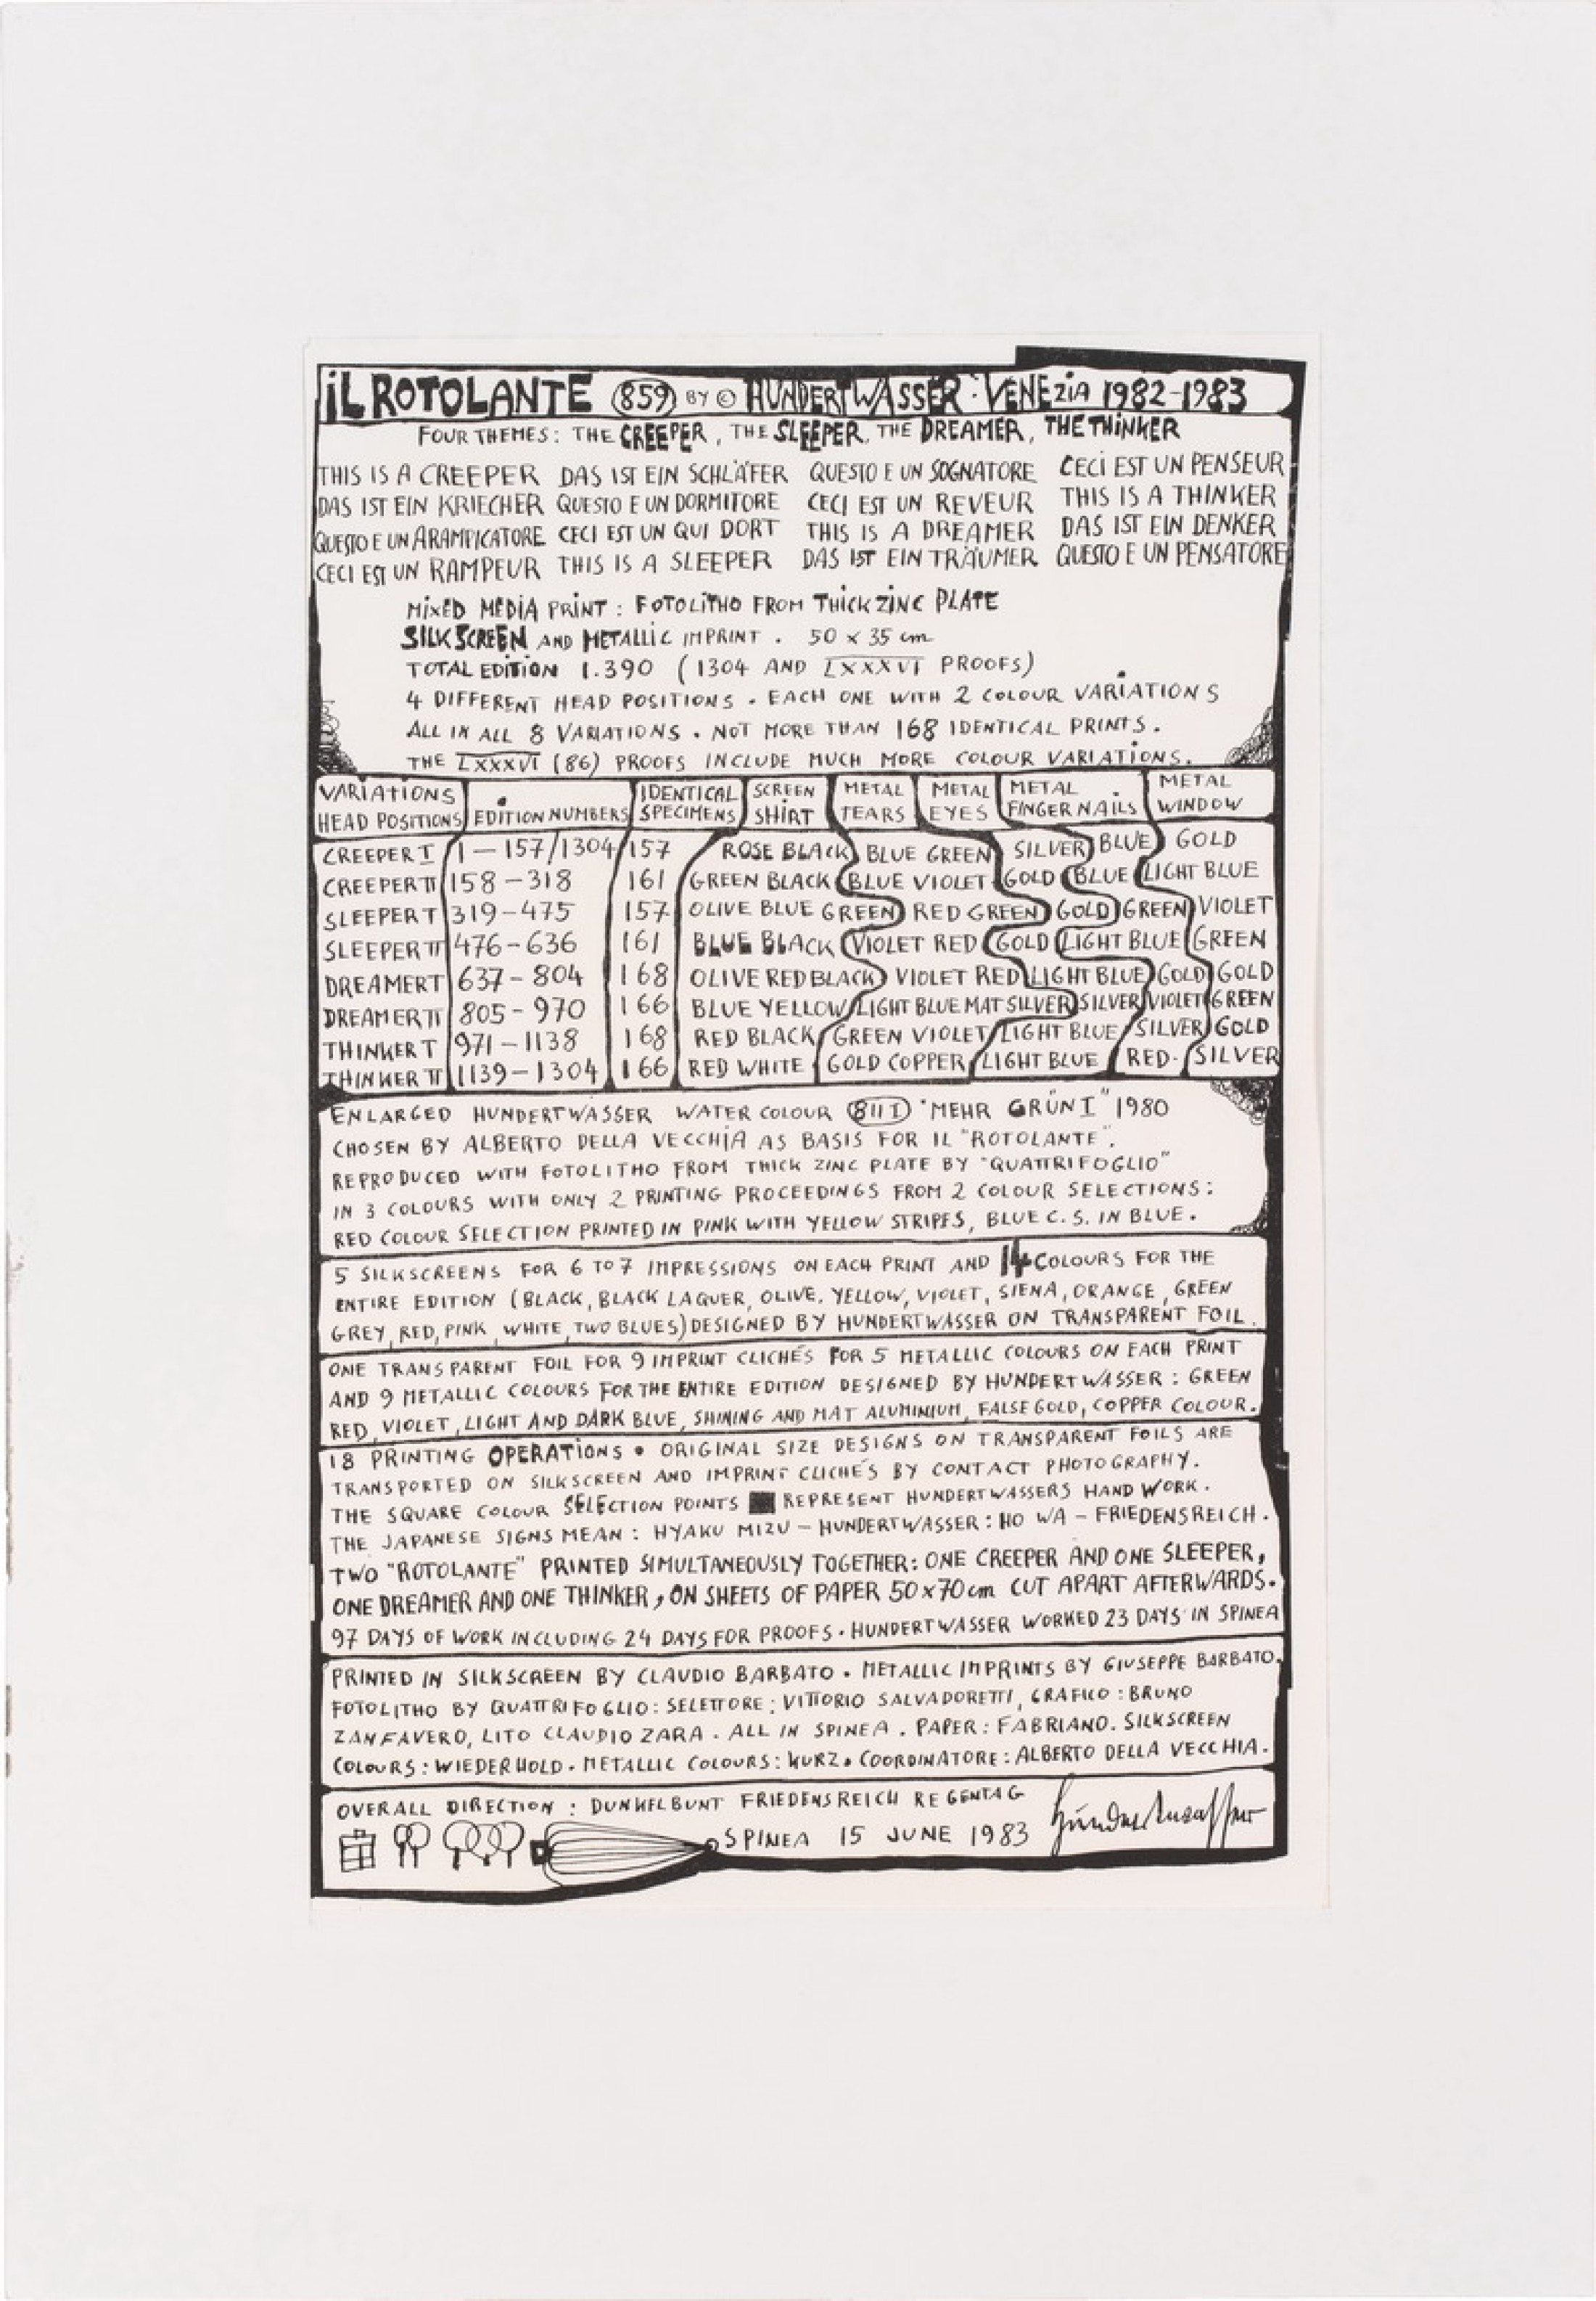 iL ROTOLANTE 859 BY © HUNDERTWASSER : VENEZIA 1982-1983
FOUR THEMES: THE CREEPER, THE SLEEPER, THE DREAMER, THE THINKER
THIS IS A CREEPER DAS IST EIN SCHLÄFER QUESTO E UN SOGNATORE CECI EST UN PENSEUR
DAS IST EIN KRIECHER QUESTO E UN DORMITORE CECI EST UN REVEUR THIS IS A THINKER
QUESTO E UN ARAMPICATORE CECI EST UN QUI DORT THIS IS A DREAMER DAS IST EIN DENKER
CECI EST UN RAMPEUR THIS IS A SLEEPER DAS IST EIN TRÄUMER QUESTO E UN PENSATORE
MIXED MEDIA PRINT : FOTOLITHO FROM THICK ZINC PLATE
SILKSCREEN AND METALLIC IMPRINT . 50 x 35 cm
TOTAL EDITION 1.390 (1304 AND LXXXVI PROOFS)
4 DIFFERENT HEAD POSITIONS . EACH ONE WITH 2 COLOUR VARIATIONS
ALL IN ALL 8 VARIATIONS . NOT MORE THAN 168 IDENTICAL PRINTS.
THE LXXXVI (86) PROOFS INCLUDE MUCH MORE COLOUR VARIATIONS.
VARIATIONS HEAD POSITIONS EDITION NUMBERS IDENTICAL SPECIMENS SCREEN SHIRT METAL TEARS METAL EYES METAL FINGER NAILS METAL WINDOW
CREEPER I 1-157/1304 157 ROSE BLACK BLUE GREEN SILVER BLUE GOLD
CREEPER II 158-318 161 GREEN BLACK BLUE VIOLET GOLD BLUE LIGHT BLUE
SLEEPER I 319-475 157 OLIVE BLUE GREEN RED GREEN GOLD GREEN VIOLET
SLEEPER II 476-636 161 BLUE BLACK VIOLET RED GOLD LIGHT BLUE GREEN
DREAMER I 637-804 168 OLIVE RED BLACK VIOLET RED LIGHT BLUE GOLD GOLD
DREAMER II 805-970 166 BLUE YELLOW LIGHT BLUE MAT SILVER SILVER VIOLET GREEN
THINKER I 971-1138 168 RED BLACK GREEN VIOLET LIGHT BLUE SILVER GOLD
THINKER II 1139-1304 166 RED WHITE GOLD COPPER LIGHT BLUE RED. SILVER
ENLARGED HUNDERTWASSER WATER COLOUR 811 I "MEHR GRÜN I" 1980
CHOSEN BY ALBERTO DELLA VECCHIA AS BASIS FOR IL "ROTOLANTE".
REPRODUCED WITH FOTOLITHO FROM THICK ZINC PLATE BY "QUATTRIFOGLIO"
IN 3 COLOURS WITH ONLY 2 PRINTING PROCEEDINGS FROM 2 COLOUR SELECTIONS:
RED COLOUR SELECTION PRINTED IN PINK WITH YELLOW STRIPES, BLUE C.S. IN BLUE.
5 SILKSCREENS FOR 6 TO 7 IMPRESSIONS ON EACH PRINT AND 14 COLOURS FOR THE
ENTIRE EDITION (BLACK, BLACK LAQUER, OLIVE, YELLOW, VIOLET, SIENA, ORANGE, GREEN
GREY, RED, PINK, WHITE, TWO BLUES) DESIGNED BY HUNDERTWASSER ON TRANSPARENT FOIL.
ONE TRANSPARENT FOIL FOR 9 IMPRINT CLICHÉS FOR 5 METALLIC COLOURS ON EACH PRINT
AND 9 METALLIC COLOURS FOR THE ENTIRE EDITION DESIGNED BY HUNDERTWASSER : GREEN
RED, VIOLET, LIGHT AND DARK BLUE, SHINING AND MAT ALUMINIUM, FALSE GOLD, COPPER COLOUR.
18 PRINTING OPERATIONS • ORIGINAL SIZE DESIGNS ON TRANSPARENT FOILS ARE
TRANSPORTED ON SILKSCREEN AND IMPRINT CLICHÉS BY CONTACT PHOTOGRAPHY.
THE SQUARE COLOUR SELECTION POINTS ■ REPRESENT HUNDERTWASSERS HAND WORK.
THE JAPANESE SIGNS MEAN : HYAKU MIZU – HUNDERTWASSER : HO WA – FRIEDENSREICH.
TWO "ROTOLANTE" PRINTED SIMULTANEOUSLY TOGETHER: ONE CREEPER AND ONE SLEEPER,
ONE DREAMER AND ONE THINKER, ON SHEETS OF PAPER 50x70cm CUT APART AFTERWARDS.
97 DAYS OF WORK INCLUDING 24 DAYS FOR PROOFS. HUNDERTWASSER WORKED 23 DAYS IN SPINEA
PRINTED IN SILKSCREEN BY CLAUDIO BARBATO. METALLIC IMPRINTS BY GIUSEPPE BARBATO,
FOTOLITHO BY QUATTRIFOGLIO: SELETTORE: VITTORIO SALVADORETTI, GRAFICO: BRUNO
ZANFAVERO, LITO CLAUDIO ZARA. ALL IN SPINEA. PAPER: FABRIANO. SILKSCREEN
COLOURS: WIEDERHOLD. METALLIC COLOURS: KURZ. COORDINATORE: ALBERTO DELLA VECCHIA.
OVERALL DIRECTION : DUNKELBUNT FRIEDENSREICH REGENTAG
SPINEA 15 JUNE 1983 Hundertwasser